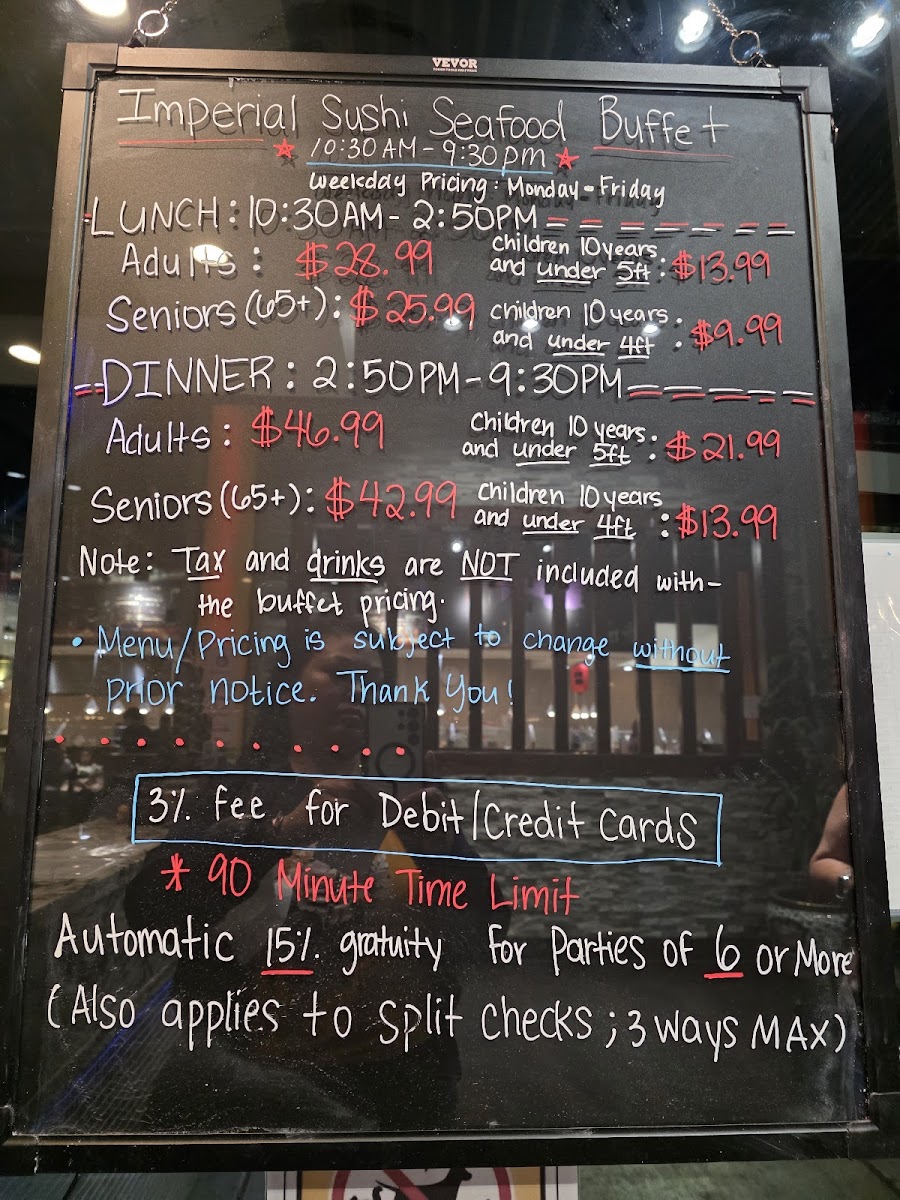 VEVOR
Imperial Sushi Seafood Buffet
10:30AM - 9:30pm
Weekday Pricing: Monday - Friday
LUNCH: 10:30AM - 2:50PM
Adults: $28.99
Children 10 years
and under 5ft: $13.99
Seniors (65+): $25.99
children 10 years
and under 4ft: $9.99
DINNER: 2:50PM - 9:30PM
Adults: $46.99
Children 10 years
and under 5ft: $21.99
Seniors (65+): $42.99
Children 10 years
and under 4ft: $13.99
Note: Tax and drinks are NOT included with-
the buffet pricing.
• Menu/Pricing is subject to change without
prior notice. Thank You!
3% Fee for Debit/Credit Cards
* 90 Minute Time Limit
Automatic 15% gratuity for Parties of 6 or More
(Also applies to split checks; 3 ways MAX)